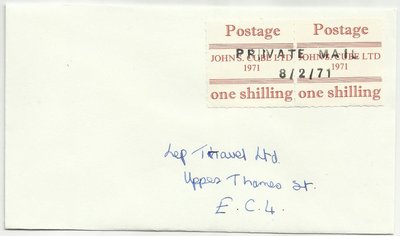 Postage Postage
PRIVATE MAIL
JOHN S. CUBE LTD JOHN S. CUBE LTD
1971 1971
8/2/71
one shilling one shilling
Lep Travel Ltd.
Upper Thames St.
E.C.4.